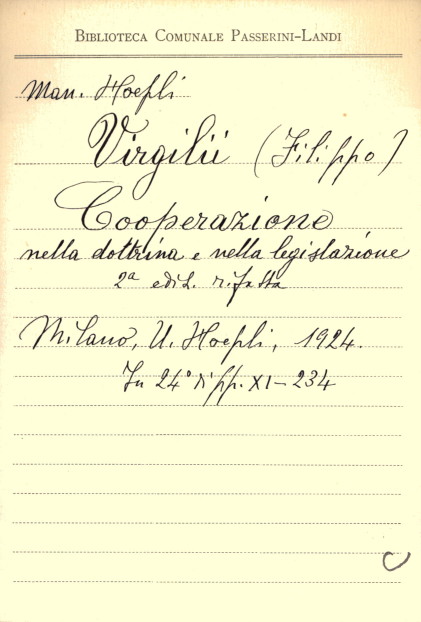 BIBLIOTECA COMUNALE PASSERINI-LANDI
Man. Hoepli
Virgilii (Filippo)
Cooperazione
nella dottrina e nella legislazione
2ª edit. rifatta
Milano, U. Hoepli, 1924.
In 24° di pp. XI-234